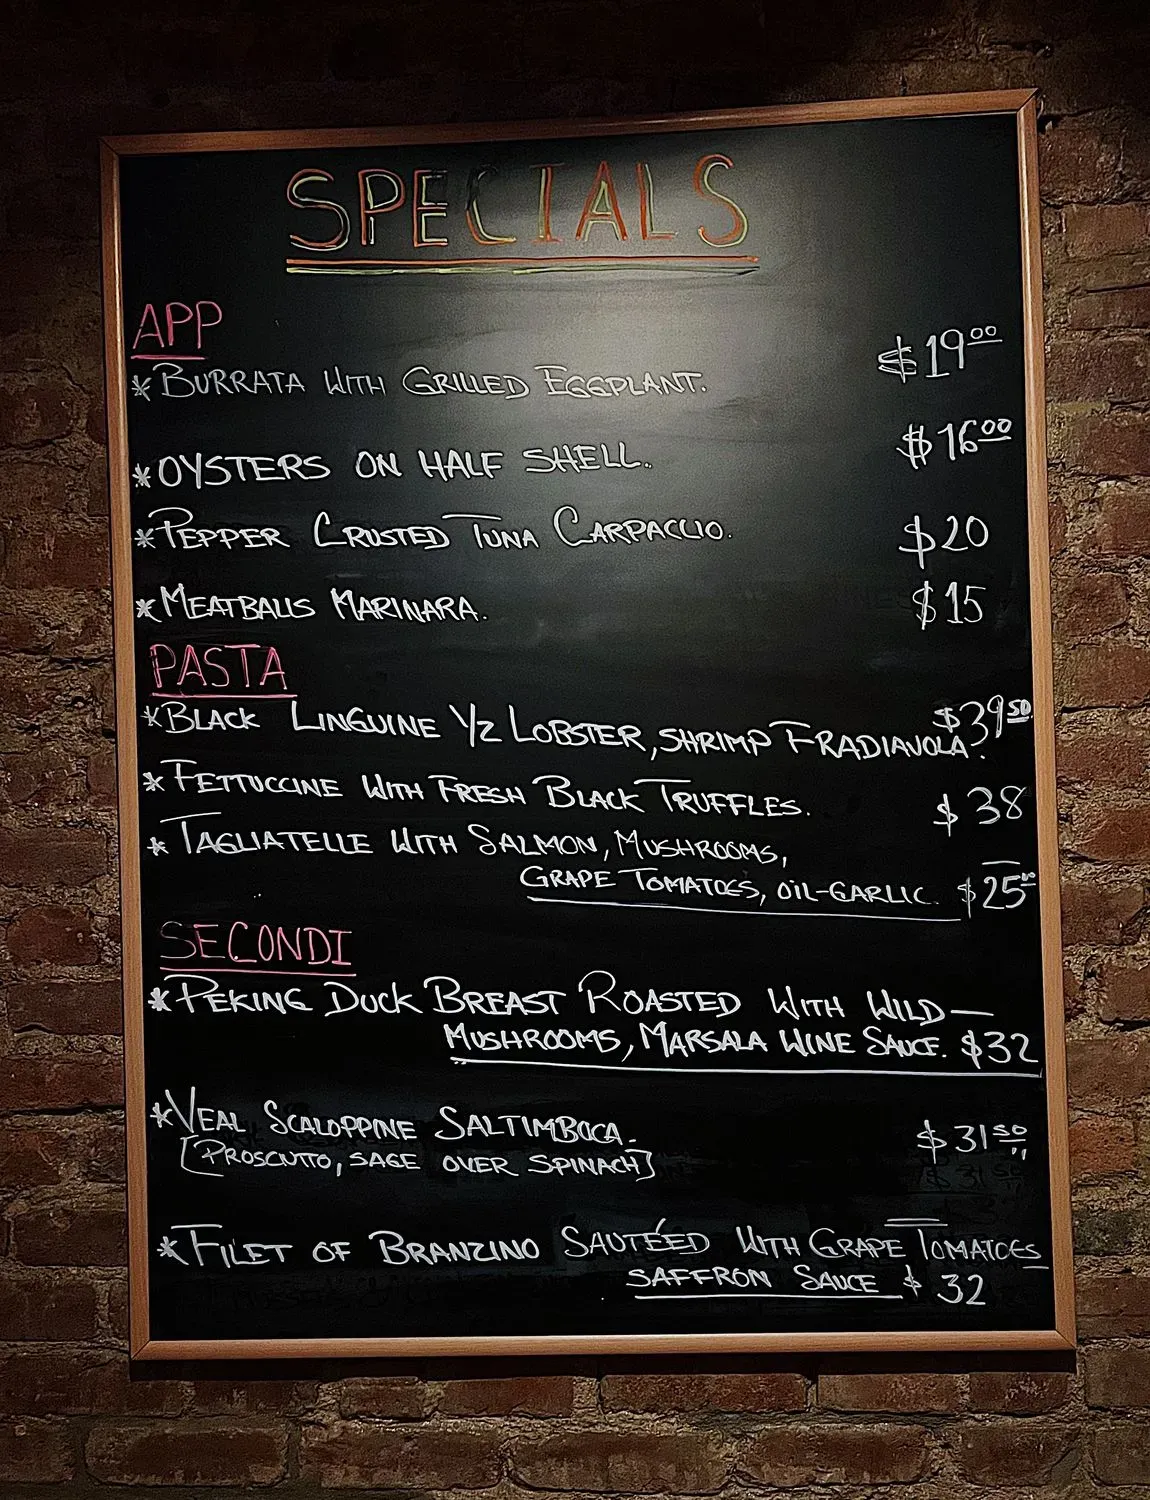 SPECIALS
APP
*BURRATA WITH GRILLED EGGPLANT. $19.00
*OYSTERS ON HALF SHELL. $16.00
*PEPPER CRUSTED TUNA CARPACCIO. $20
*MEATBALLS MARINARA. $15
PASTA
*BLACK LINGUINE 1/2 LOBSTER, SHRIMP FRADIAVOLA. $39.50
*FETTUCCINE WITH FRESH BLACK TRUFFLES. $38
*TAGLIATELLE WITH SALMON, MUSHROOMS,
GRAPE TOMATOES, OIL-GARLIC. $25.00
SECONDI
*PEKING DUCK BREAST ROASTED WITH WILD—
MUSHROOMS, MARSALA WINE SAUCE. $32
*VEAL SCALOPPINE SALTIMBOCA. $31.50
[PROSCIUTTO, SAGE OVER SPINACH]
*FILET OF BRANZINO SAUTÉED WITH GRAPE TOMATOES
SAFFRON SAUCE $32